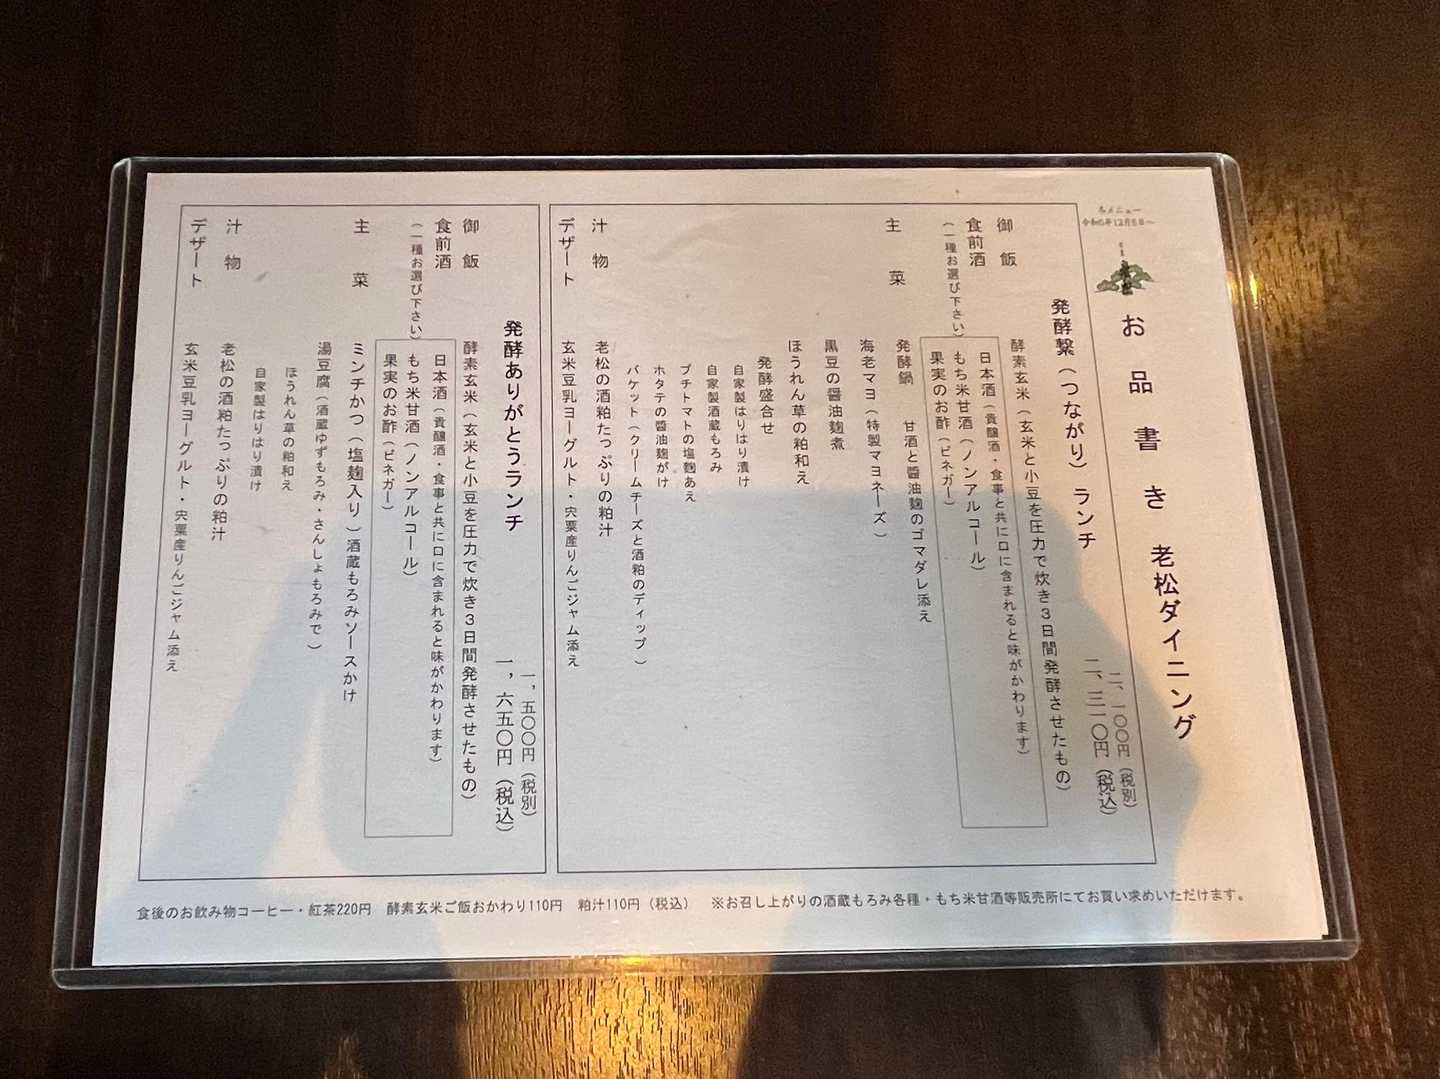 冬メニュー
お品書き 老松ダイニング
発酵繋（つながり）ランチ
二、一〇〇円（税別）
二、三一〇円（税込）
御飯 酵素玄米（玄米と小豆を圧力で炊き３日間発酵させたもの）
食前酒 日本酒（貴醸酒・食事と共に口に含まれると味がかわります）
（一種お選び下さい） もち米甘酒（ノンアルコール）
果実のお酢（ビネガー）
主菜 発酵鍋 甘酒と醤油麹のゴマダレ添え
海老マヨ（特製マヨネーズ）
黒豆の醤油麹煮
ほうれん草の粕和え
発酵盛合せ
自家製はりはり漬け
自家製酒蔵もろみ
プチトマトの塩麹あえ
ホタテの醤油麹がけ
バケット（クリームチーズと酒粕のディップ）
汁物 老松の酒粕たっぷりの粕汁
デザート 玄米豆乳ヨーグルト・宍粟産りんごジャム添え
発酵ありがとうランチ
一，五〇〇円（税別）
一，六五〇円（税込）
御飯 酵素玄米（玄米と小豆を圧力で炊き３日間発酵させたもの）
食前酒 日本酒（貴醸酒・食事と共に口に含まれると味がかわります）
（一種お選び下さい） もち米甘酒（ノンアルコール）
果実のお酢（ビネガー）
主菜 ミンチかつ（塩麹入り）酒蔵もろみソースかけ
湯豆腐（酒蔵ゆずもろみ・さんしょもろみで）
ほうれん草の粕和え
自家製はりはり漬け
汁物 老松の酒粕たっぷりの粕汁
デザート 玄米豆乳ヨーグルト・宍粟産りんごジャム添え
食後のお飲み物コーヒー・紅茶220円 酵素玄米ご飯おかわり110円 粕汁110円（税込） ※お召し上がりの酒蔵もろみ各種・もち米甘酒等販売所にてお買い求めいただけます。